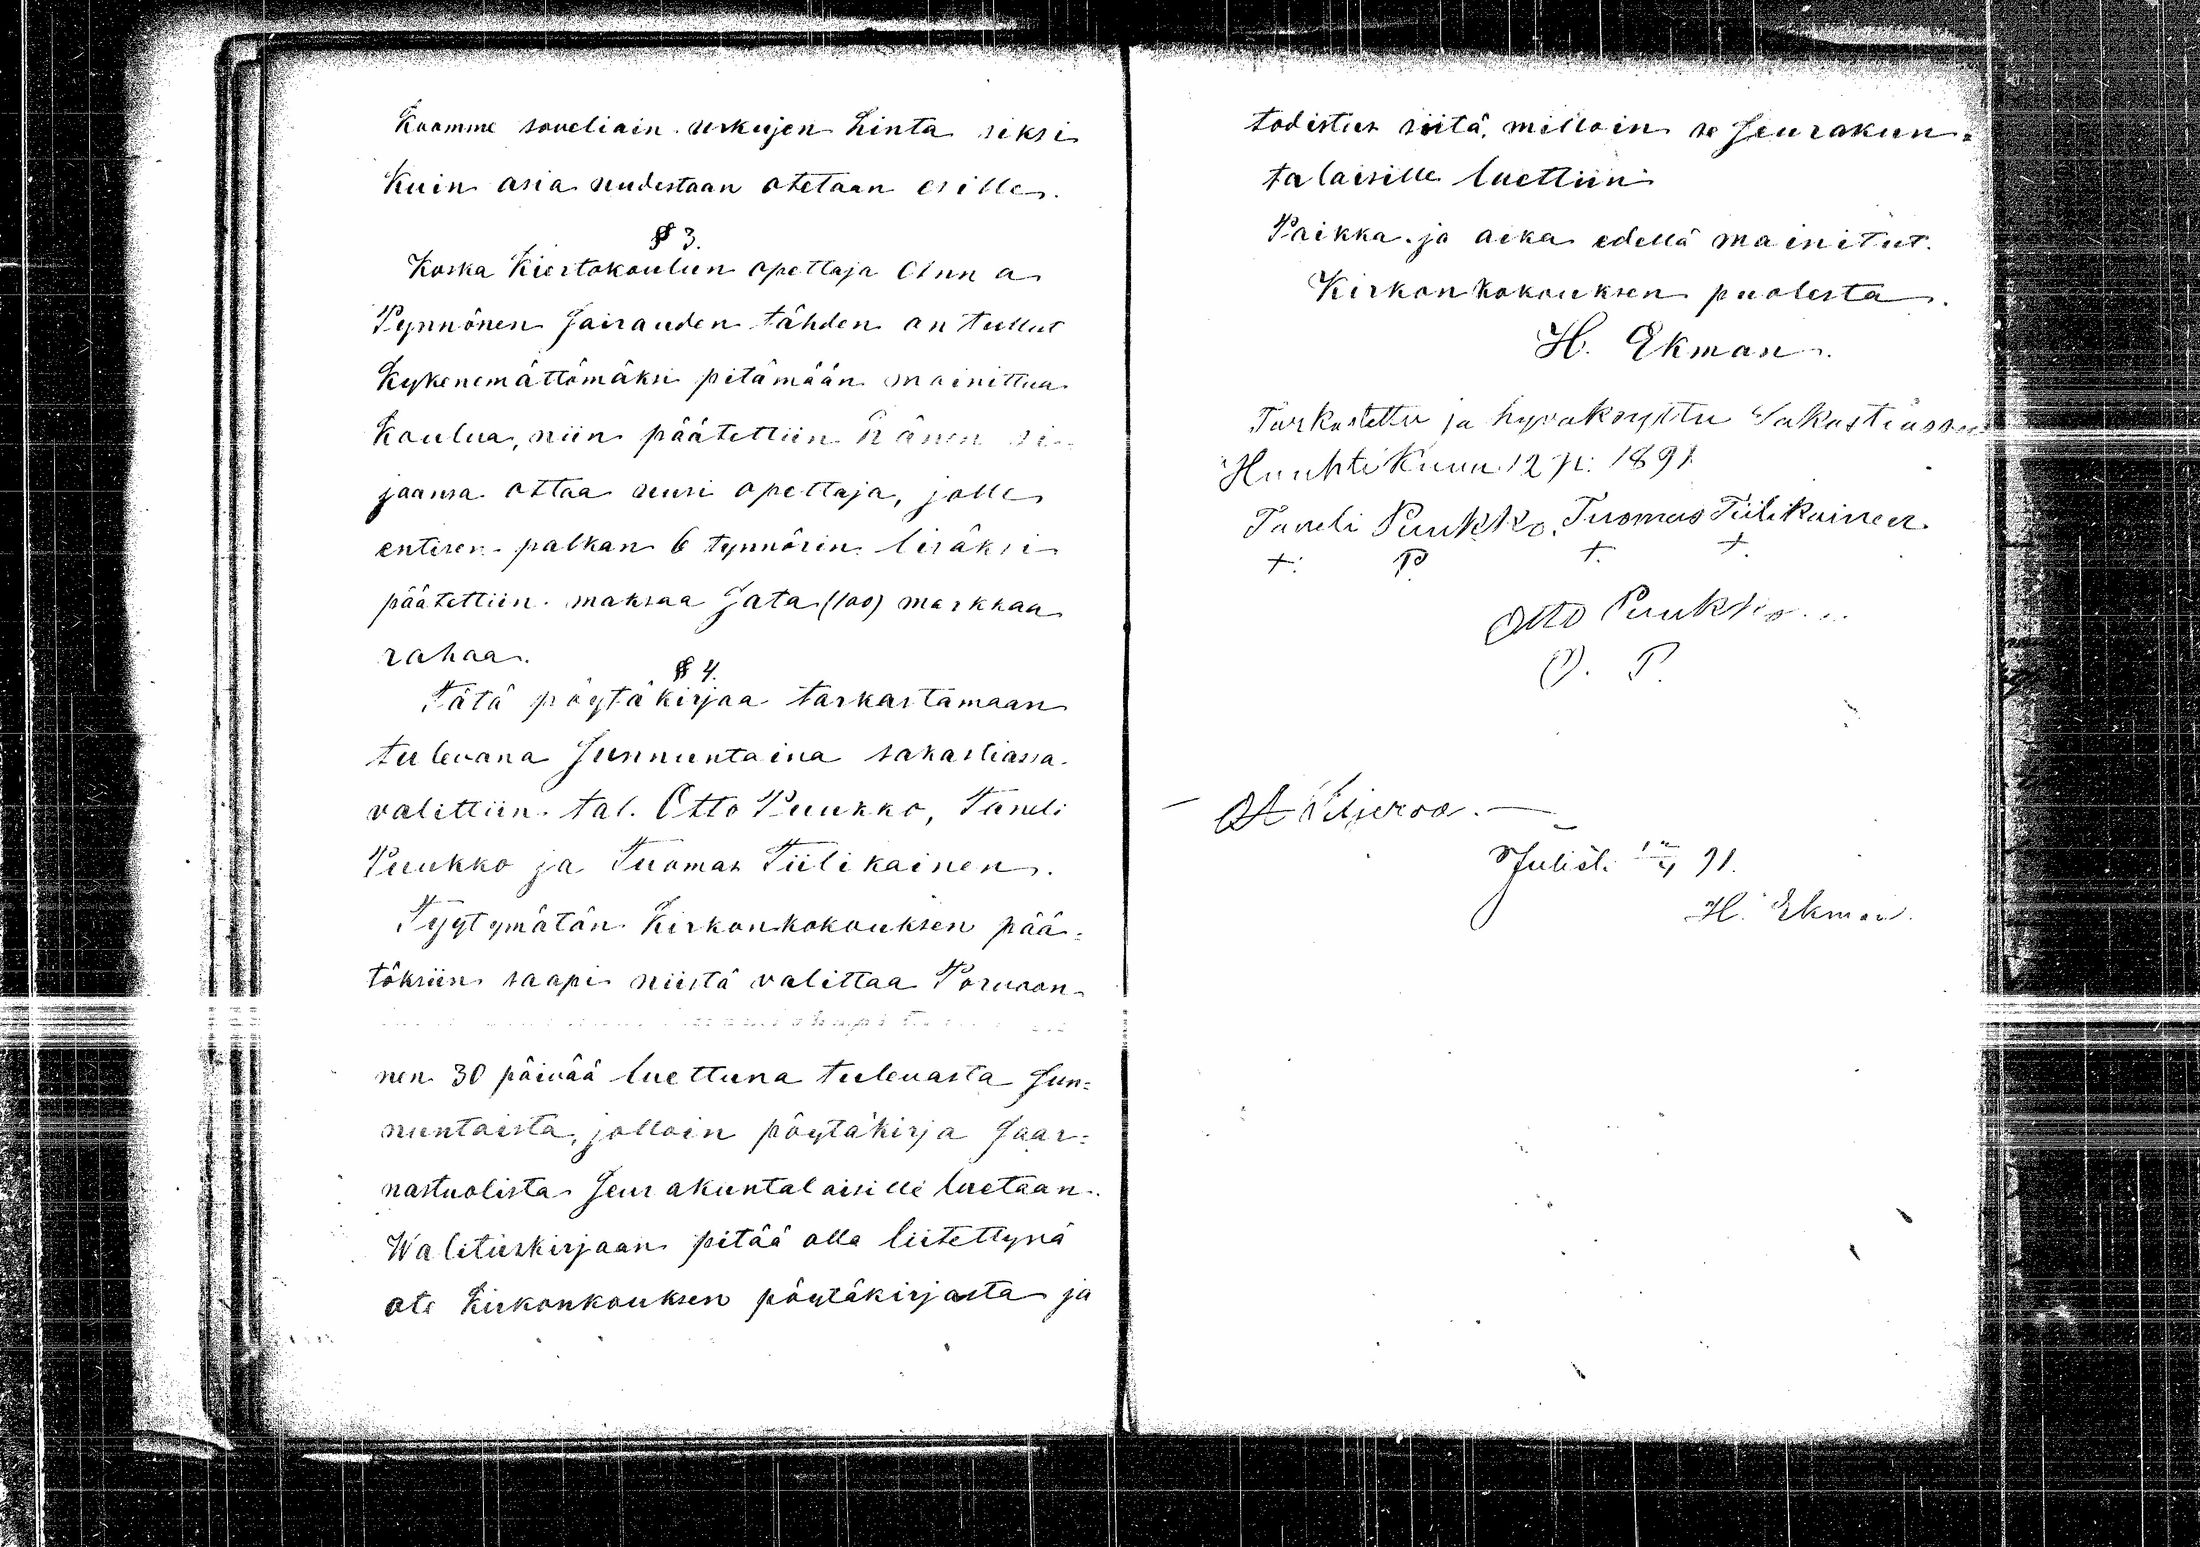 Koomme soveliain urkujen hinta siksi
kuin asia uudestaan otetaan esille.
§ 3.
Koska Kiertokoulun opettaja Anna
Pynnönen Sairauden tähden on tullut
kykenemättömäksi pitämään mainittua
koulua, niin päätettiin hänen si-
jaansa ottaa uusi opettaja, jolle
entisen palkan 6 tynnörin lisäksi
päätettiin maksaa Sata (100) markkaa
rahaa.
§ 4.
Tätä pöytäkirjaa tarkastamaan
tulevana Sunnuntaina sakastiassa
valittiin tal. Otto Puukko, Taneli
Puukko ja Tuomas Tiilikainen.
Tyytymätön Kirkonkokouksen pää=
töksiin saapi niistä valittaa Porvoon
nen 30 päivää luettuna tulevasta Sun=
nuntaista, jolloin pöytäkirja Saar=
nastuolista Seurakuntalaisille luetaan.
Walituskirjaan pitää olla liitettynä
ote Kirkonkouksen pöytäkirjasta ja
todistus siitä, milloin se Seurakun=
talaisille luettiin
Paikka ja aika edellä mainitut.
Kirkonkokouksen puolesta.
H. Ekman.
Tarkastettu ja hyväksytty Sakastiassa
Huuhtikuun 12 p: 1891
Taneli Puukko. Tuomas Tiilikainen.
+. P. +. +.
Otto Puukko...
O. P.
Julist. 91.
H. Ekman.